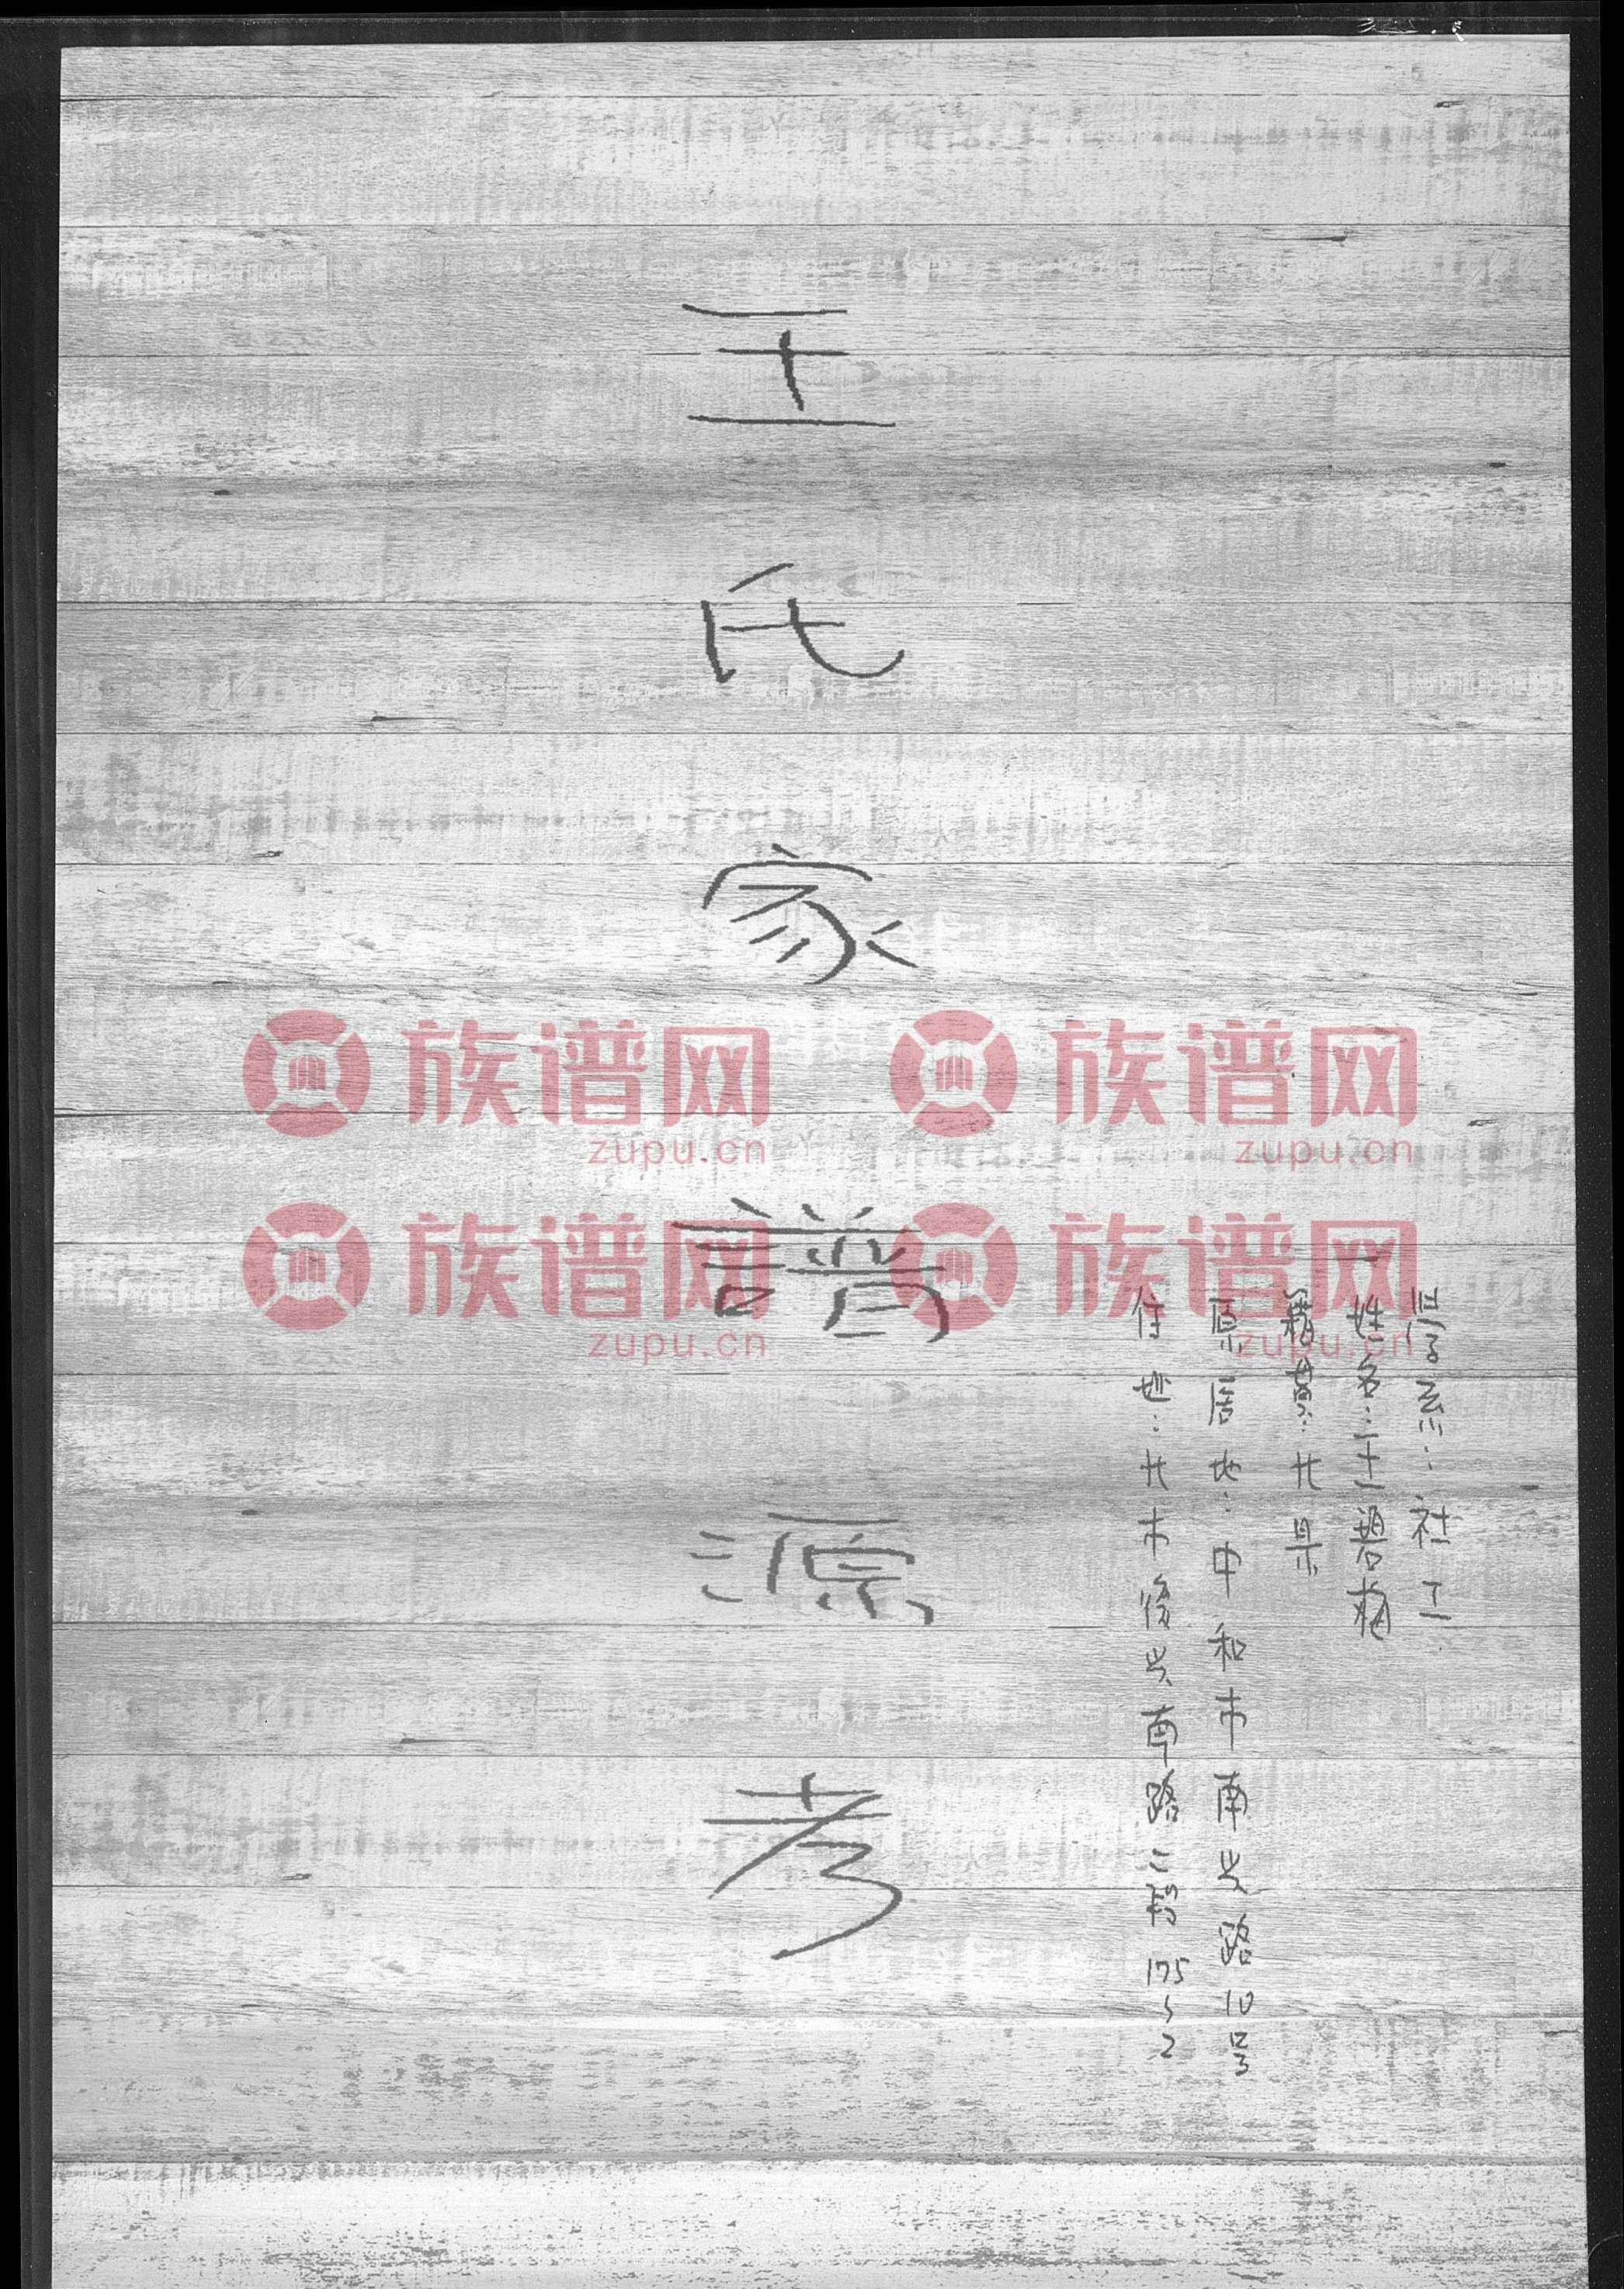 王氏家譜源考
學系：社工
姓名：王碧梅
籍貫：北県
原居地：中和市南势路10号
住址：北市復兴南路二段175～2
族谱网
zupu.cn
族谱网
zupu.cn
族谱网
zupu.cn
族谱网
zupu.cn